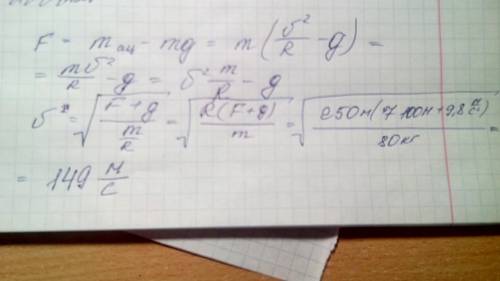 F = m aц - mg = m (υ²/R - g) =
= mυ²/R - g = υ² m/R - g
υ = √((F + g)/(m/R)) = √(R(F+g)/m) = √(250м(7100н + 9,8 м/с²)/80кг) =
= 149 м/с